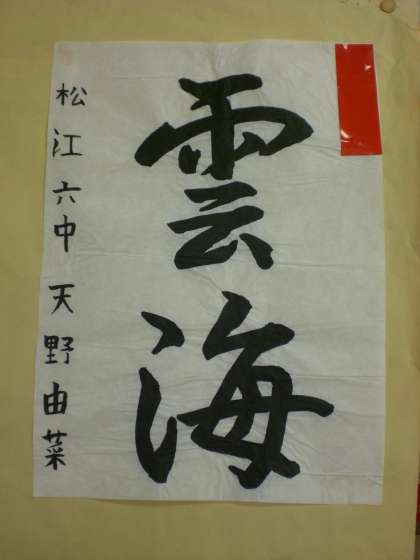 雲海
松江六中 天野由菜